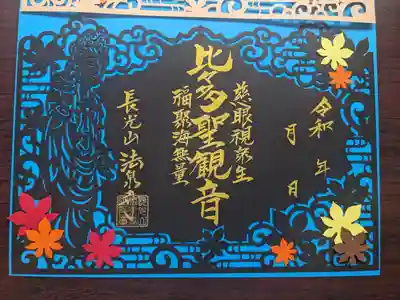 令和 年
月 日
慈眼視衆生
比多聖観音
福聚海無量
長光山 法泉寺